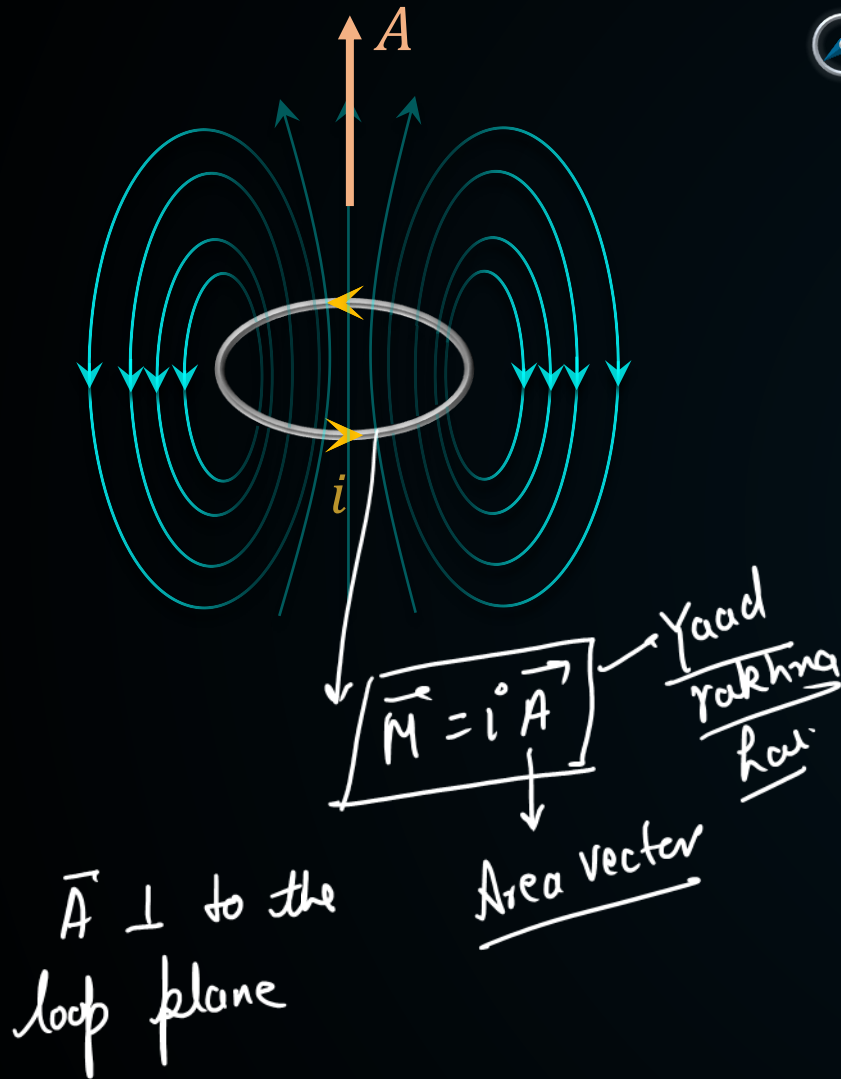 A
i
M⃗ = i A⃗
Yaad
rakhna
hai
Area vector
A⃗ ⊥ to the
loop plane